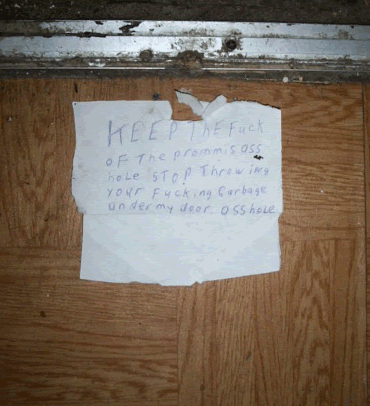 KEEP The Fuck
OF The prommis ass
hole STOP Throwing
your Fucking Garbage
under my door. asshole